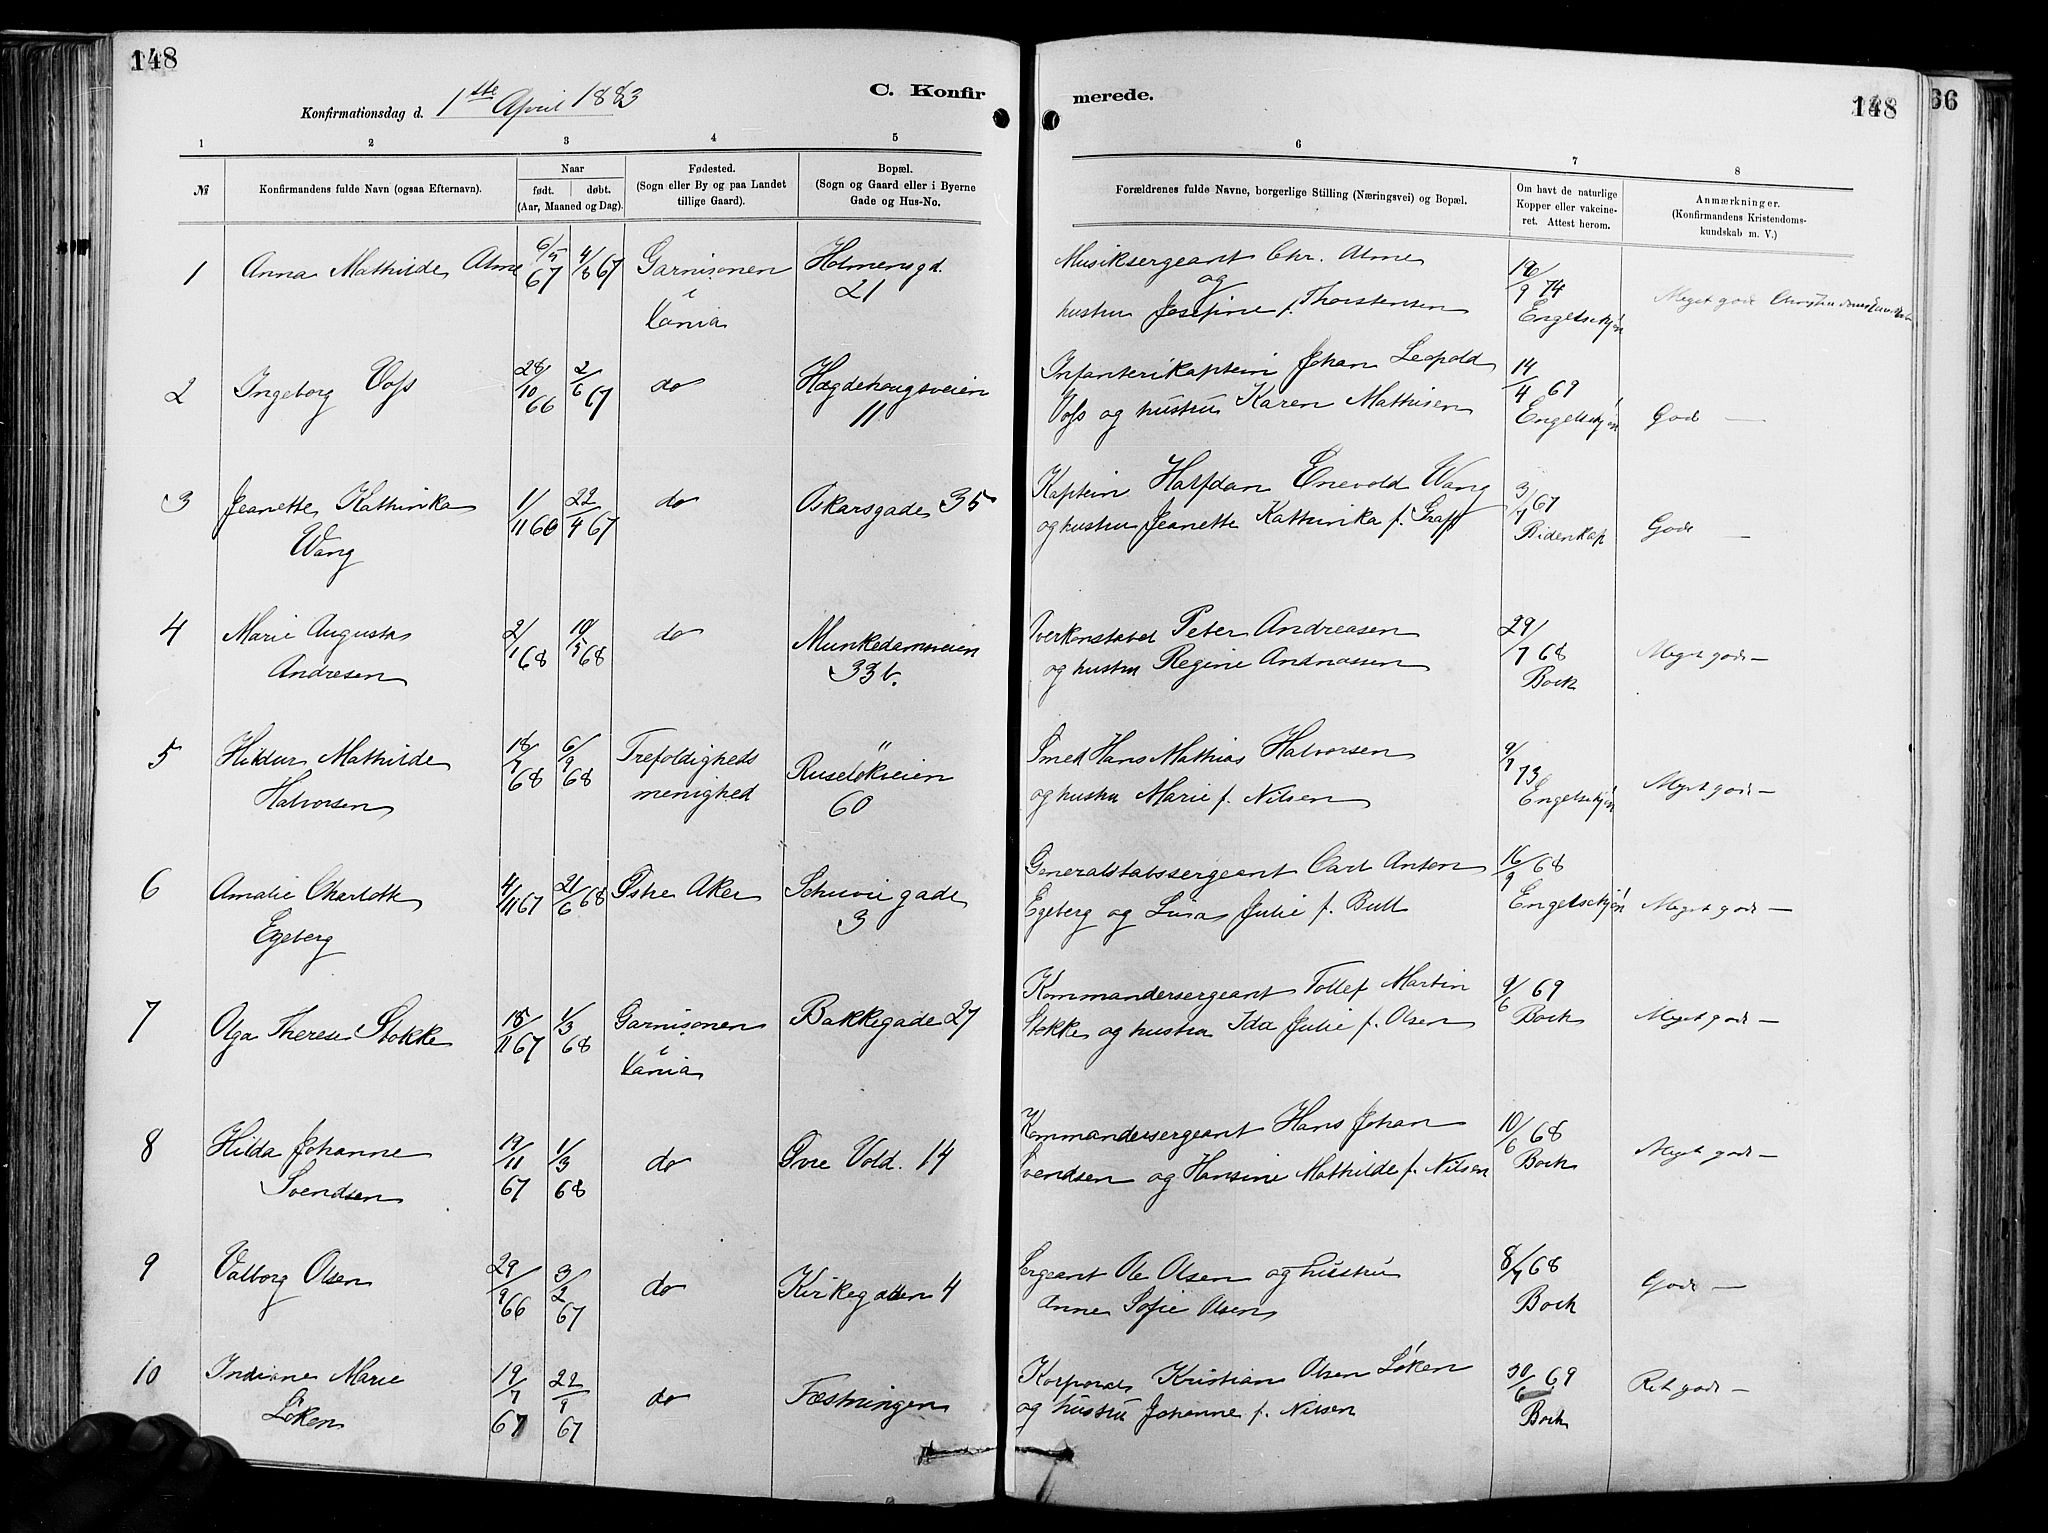 148
Konfirmationsdag d. 1ste April 1883
C. Konfir
merede.
148
66
1 2 3 4 5 6 7 8
№
Konfirmandens fulde Navn (ogsaa Efternavn).
Naar
født. døbt.
(Aar, Maaned og Dag).
Fødested.
(Sogn eller By og paa Landet
tillige Gaard).
Bopæl.
(Sogn og Gaard eller i Byerne
Gade og Hus-No.
Forældrenes fulde Navne, borgerlige Stilling (Næringsvei) og Bopæl.
Om havt de naturlige
Kopper eller vakcine-
ret. Attest herom.
Anmærkninger.
(Konfirmandens Kristendoms-
kundskab m. V.)
1 Anna Mathilde Alme 6/5 67 4/8 67 Garnisonen i Xania Holmensgd. 21
Musiksergeant Chr. Alme
og
hustru Josefine f. Thorstensen
/9 74 Engelsckjøn
Meget god
2 Ingeborg Voss 28/10 66 2/6 67 do Hægdehougsveien 11
Infanterikaptein Johan Leopold
Voss og hustru Karen Mathisen
14/4 69 Engelsckjøn
God —
3 Jeanette Kathinka Wang 1/11 66 22/4 67 do Oskarsgade 35
Kaptein Halfdan Enevold Wang
og hustru Jeanette Kathinka f. Graff
3/7 67 Bidenkap
God —
4 Marie Augusta Andresen 2/1 68 10/5 68 do Munkedamsveien 33 b.
Overkonstabel Peter Andreasen
og hustru Regine Andreassen
29/7 68 Bock
Meget god —
5 Hildur Mathilde Halvorsen 18/7 68 6/9 68 Trefoldigheds menighed Ruseløkveien 60
Smed Hans Mathias Halvorsen
og hustru Marie f. Nilsen
9/7 73 Engelsckjøn
Meget god —
6 Amalie Charlotte Egeberg 4/11 67 21/6 68 Østre Aker Schwei gade 3
Generalstabssergeant Carl Anton
Egeberg og Lina Julie f. Bull
16/9 68 Engelsckjøn
Meget god —
7 Olga Therese Stokke 15/11 67 1/3 68 Garnisonen i Xania Bakkegade 27
Kommandersergeant Tollef Martin
Stokke og hustru Ida Julie f. Olsen
9/6 69 Bock
Meget god —
8 Hilda Johanne Svendsen 19/11 67 1/3 68 do Øvre Vold. 14
Kommandersergeant Hans Johan
Svendsen og Hansine Mathilde f. Nilsen
10/6 68 Bock
Meget god —
9 Valborg Olsen 29/9 66 3/2 67 do Kirkegaden 4
Sergeant Ole Olsen og hustru
Anne Sofie Olsen
8/7 68 Bock
God —
10 Indiane Marie Løken 19/7 67 22/9 67 do Fæstningen
Korporal Kristian Olsen Løken
og hustru Johanne f. Nilsen
30/6 69 Bock
Ret god —